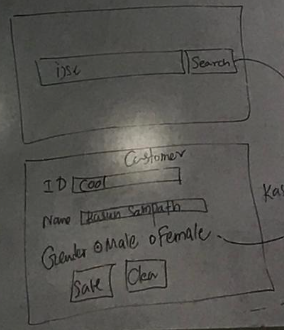 Search
Customer
ID Cool
Name Kasun Sampath
Gender Male Female
Save Clear